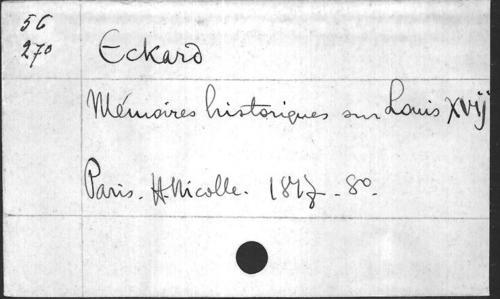 56
270
Eckard
Mémoires historiques sur Louis XVIJ
Paris. H. Nicolle. 1817. 8o.